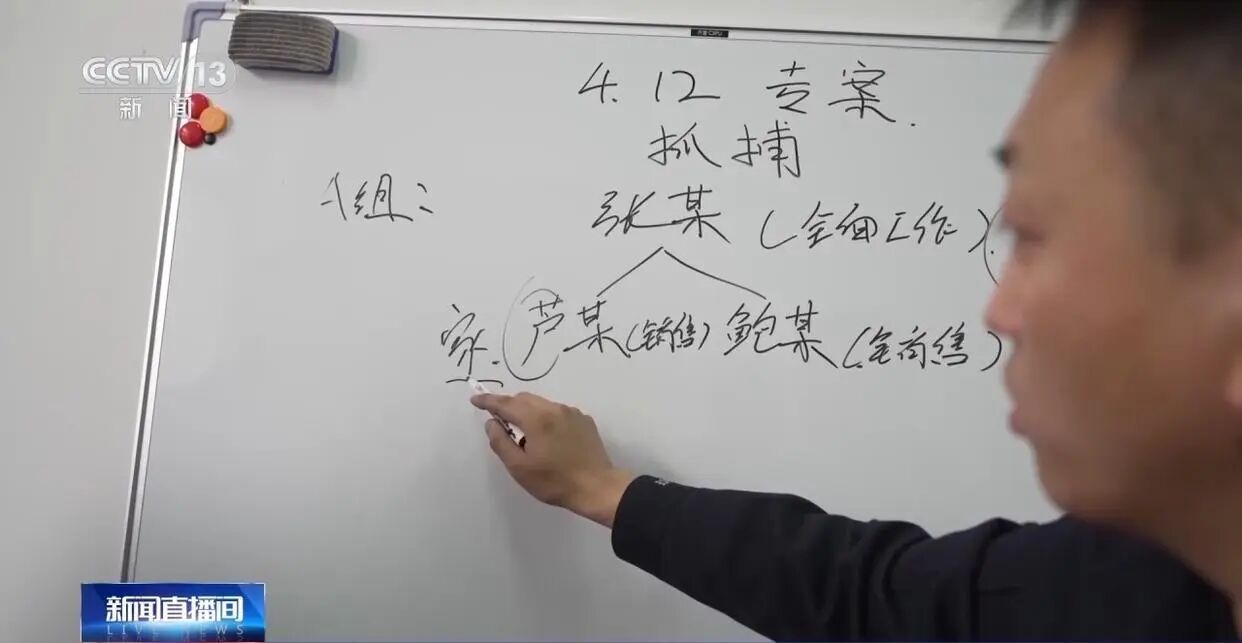 CCTV 13
新闻
4.12 专案.
抓捕
A组:
张某 (全面工作)
家. 芦某 (销售) 鲍某 (全商售)
新闻直播间
LIVE NEWS